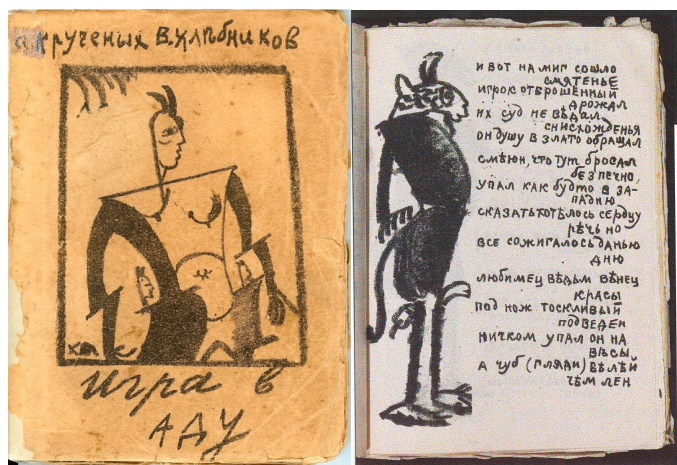 а. крученых В. Хлѣбников
игра в
аду
и вот на миг сошло
смятенье
игрок отброшенный
дрожал
их суд не вѣдал
снисхожденья
он душу в злато обращал
смѣюн, что тут бросал
безпечно,
упал как будто в за-
падню
сказать хотѣлось сердцу
рѣчь но
все сожигалось данью
дню
любимец вѣдьм вѣнец
красы
под нож тоскливый
подведен
ничком упал он на
вѣсы
а чуб (гляди) бѣлѣй
чѣм лен